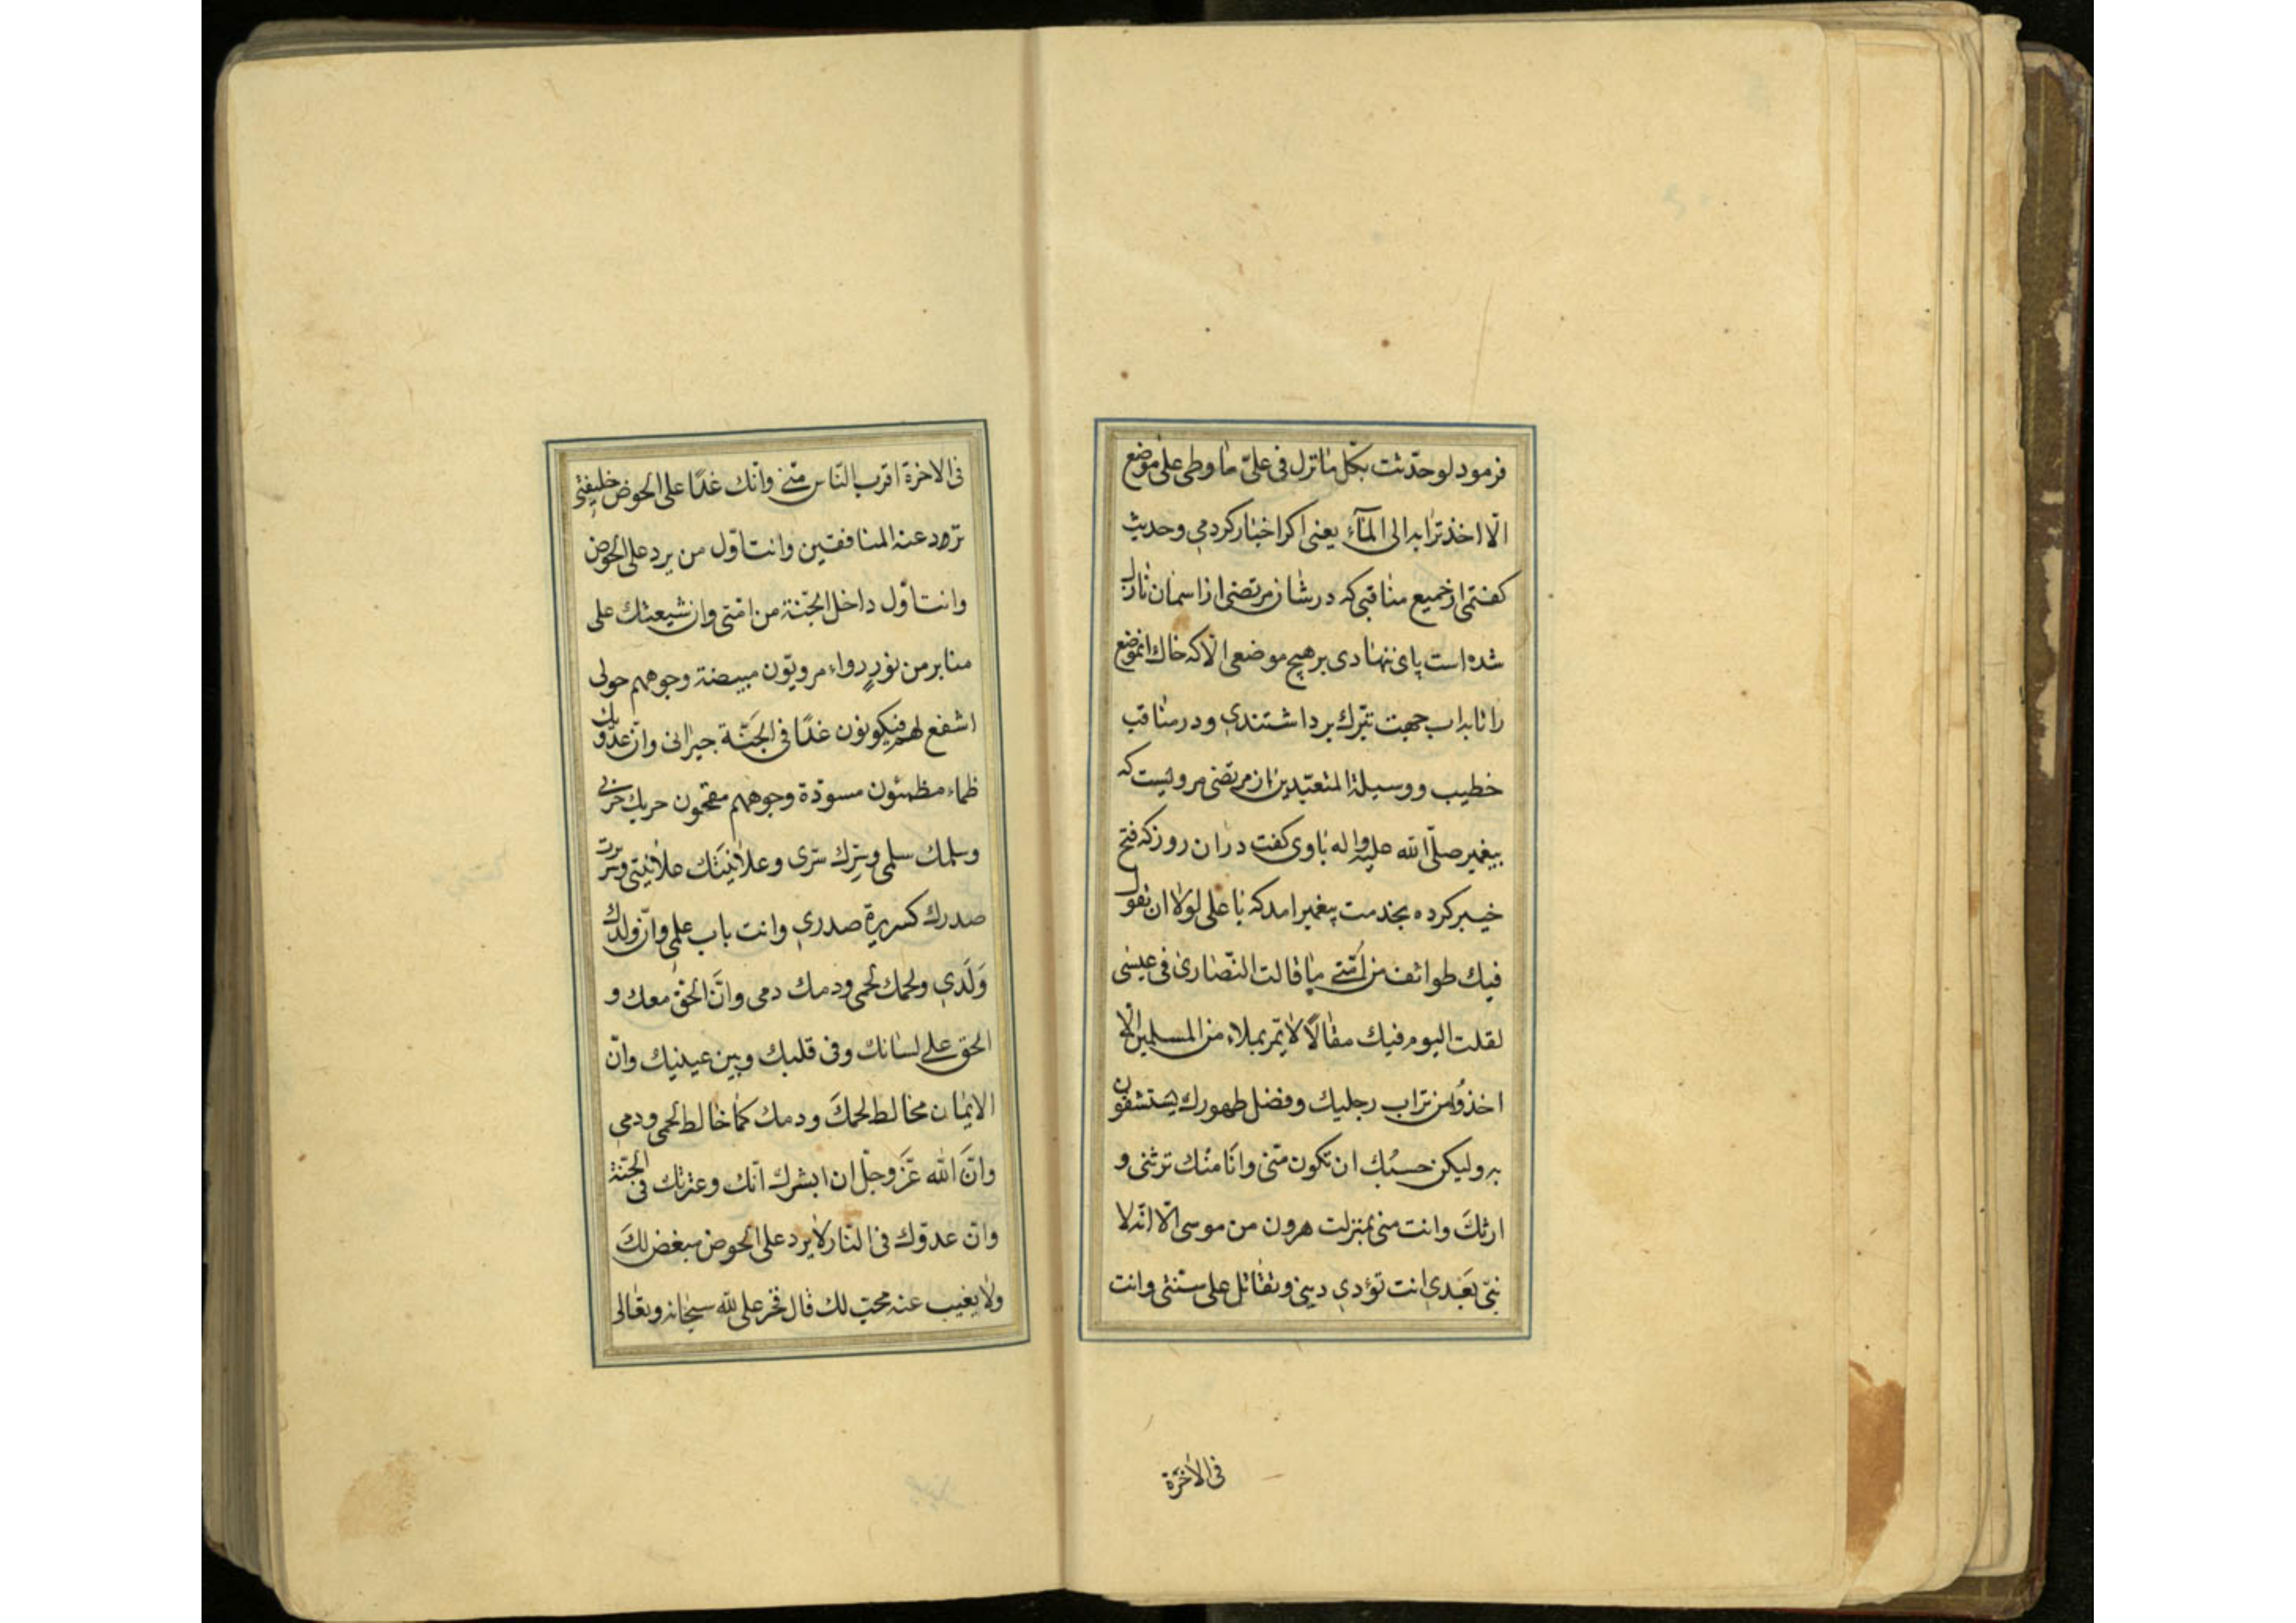 فرمود لو حدّثت بكلّ ما نزل فی علیّ ما وطی علی موضع
الّا اخذ ترابه الی المآء یعنی اکر اخبار کردمی وحدیث
کفتمی از جمیع مناقبی که در شان مرتضی از اسمان نازل
شده است پای ننهادی بر هیچ موضعی الّا که خاك انموضع
را تا بداب جهت تبّرك بر داشتندی ودر مناقب
خطیب ووسیلة المتعبّدین از مرتضی مرویست که
پیغمبر صلّی الله علیه واله باوی کفت در ان روز که فتح
خیبر کرده بخدمت پیغمبر امد که یا علی لولا ان تقول
فیك طوائف من امّتی ما قالت النّصاری فی عیسی
لقلت الیوم فیك مقالًا لا تمّر بملاء من المسلمین الّا
اخذوا من تراب رجلیك وفضل طهورك یستشفون
به ولیکن حسبك ان تکون منّی وانا منك ترثنی و
ارثكَ وانت منی بمنزلت هرون من موسی الّا انّه لا
نبیّ بعدی انت تؤدی دینی وتقاتل علی سنّتی وانت
فی الاخرة
فی الاخرة اقرب النّاس منّی وانّك غدًا علی الحوض خلیفتی
تزود عنه المنافقین وانت اوّل من یرد علی الحوض
وانت اوّل داخل الجنّة من امّتی وان شیعتك علی
منابر من نورٍ رواء مرویّون مبیضة وجوههم حولی
اشفع لهم فیکونون غدًا فی الجَنّة جیرانی وان عدّوك
ظماء مظمئون مسودّة وجوههم مقمحون حربك حربی
وسلمك سلمی وسِرّك سّری وعلانیتَك علانیتی وسریرت
صدرك کسریرة صدری وانت باب علمی وانّ ولدك
وَلَدی ولحمك لحمی ودمك دمی وانَّ الحقّ معك و
الحق علی لسانك وفی قلبك وبین عینیك وانّ
الایمان مخالط لحمكَ ودمك کما خالط لحمی ودمی
وانَّ الله عَزّ وجلّ ان ابشرك انّك وعترتك فی الجنّة
وانّ عدوّك فی النّار لا یرد علی الحوض مبغض لكَ
ولا یغیب عنه محبّ لك قال فخر علی لله سبحانه وتعالی